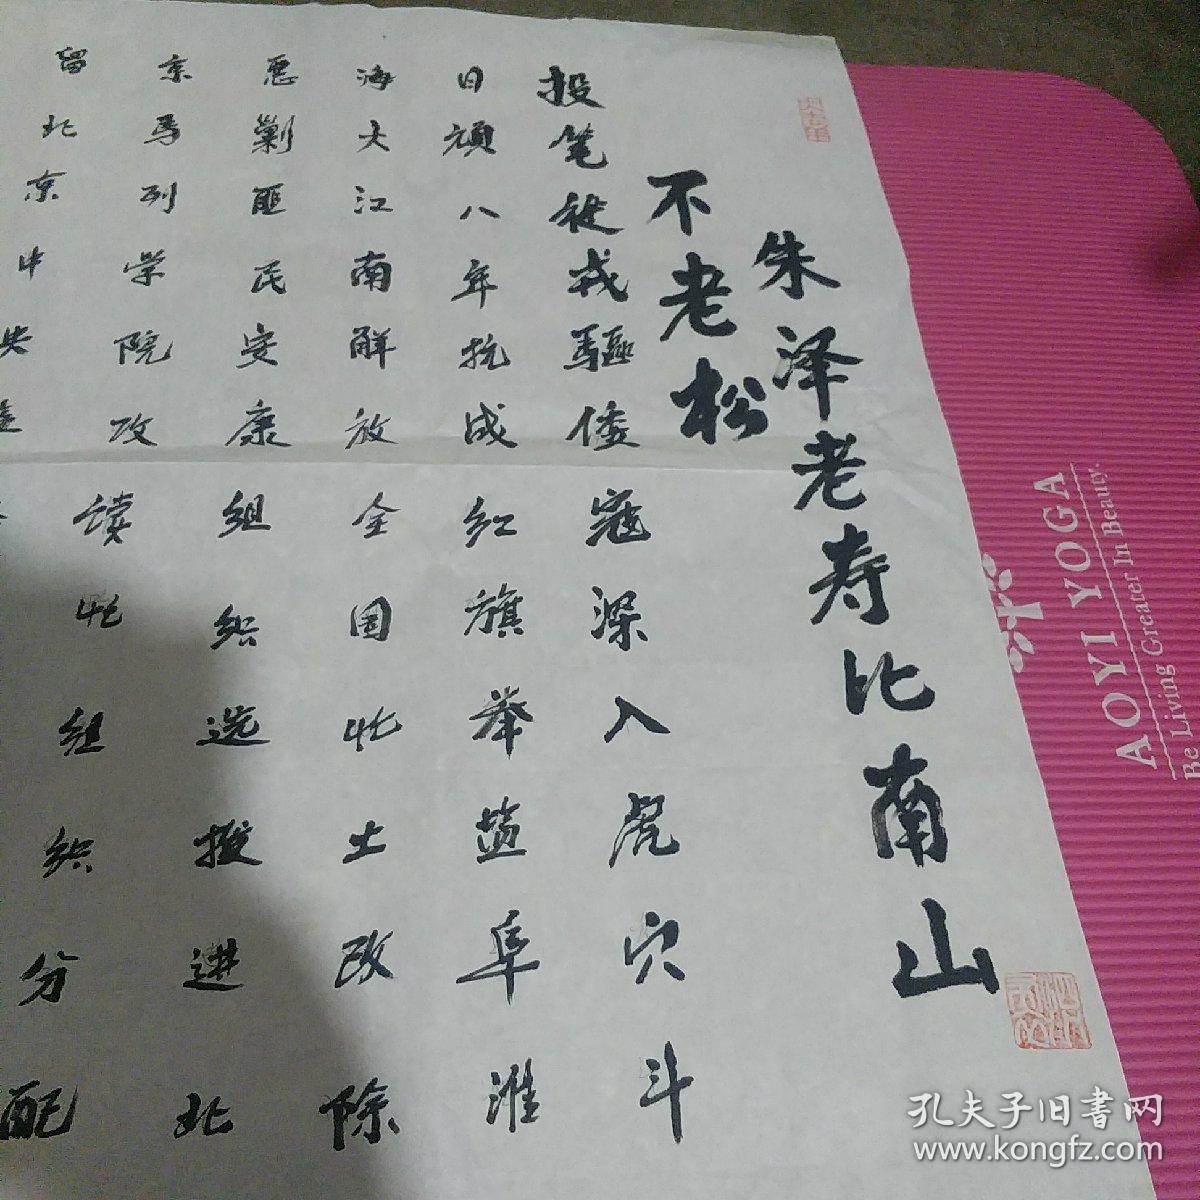 朱泽老寿比南山
不老松
投笔从戎驱倭寇深入虎穴斗
日頑八年抗战红旗举盐阜淮
海大江南解放全国北土改除
恶剿匪民安康组织选拨进北
京马列学院攻读北组织分配
留北京中央
AOYI YOGA
Be Living Greater In Beauty.
孔夫子旧书网
www.kongfz.com